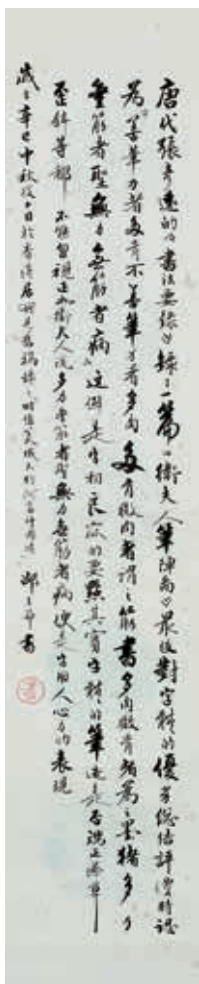 唐代張彥遠的《書法要錄》錄了一篇《衛夫人筆陣圖》最後對字體的優劣總估評價時認
為善筆力者多骨不善筆力者多肉多骨微肉者謂之筋書多肉微骨者為之墨猪多力
豐筋者聖無力無筋者病這個是字相良窳的要點其實字體的筆迹是否端正潦草
歪斜等都不能忽視正如衛夫人說多力豐筋者聖無力無筋者病便是書由人心手的表現
歲在辛巳中秋後 日於香港居 書